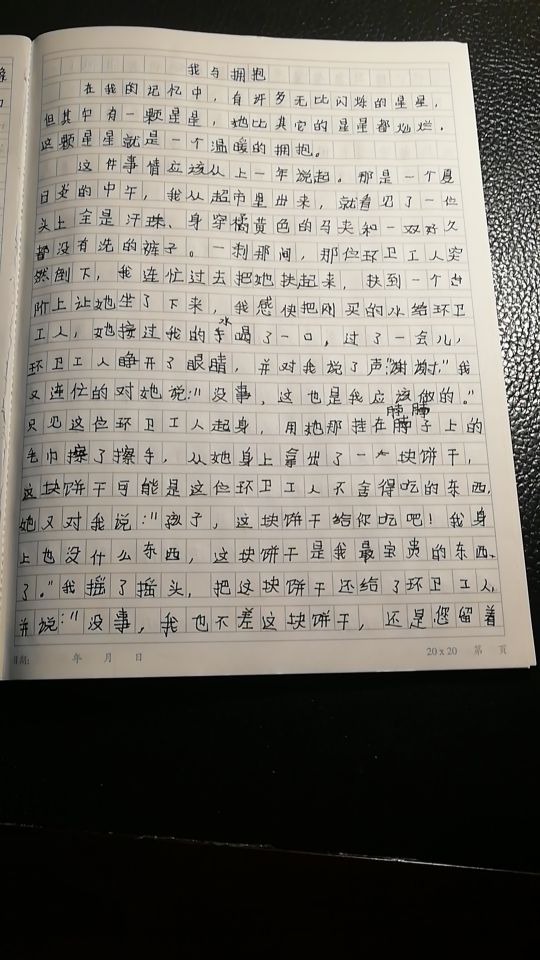 我与拥抱
在我的记忆中，有许多无比闪烁的星星，
但其中有一颗星星，她比其它的星星都灿烂，
这颗星星就是一个温暖的拥抱。
这件事情应该从上一年说起。那是一个夏
日炎的中午，我从超市里出来，就看见了一位
头上全是汗珠、身穿橘黄色的马夹和一双好久
都没有洗的裤子。一刹那间，那位环卫工人突
然倒下，我连忙过去把她扶起来，扶到一个台
阶上让她坐了下来，我感快把刚买的水给环卫
工人，她接过我的手喝了一口，过了一会儿，
水
环卫工人睁开了眼睛，并对我说了声："谢谢，"我
又连忙的对她说："没事，这也是我应该做的。"
脖 脖
只见这位环卫工人起身，用她那挂在脖子上的
毛巾擦了擦手，从她身上拿出了一块饼干，
这块饼干可能是这位环卫工人不舍得吃的东西，
她又对我说："孩子，这块饼干给你吃吧！我身
上也没什么东西，这块饼干是我最宝贵的东西
了。"我摇了摇头，把这块饼干还给了环卫工人，
并说："没事，我也不差这块饼干，还是您留着
日期： 年 月 日
20×20 第 页